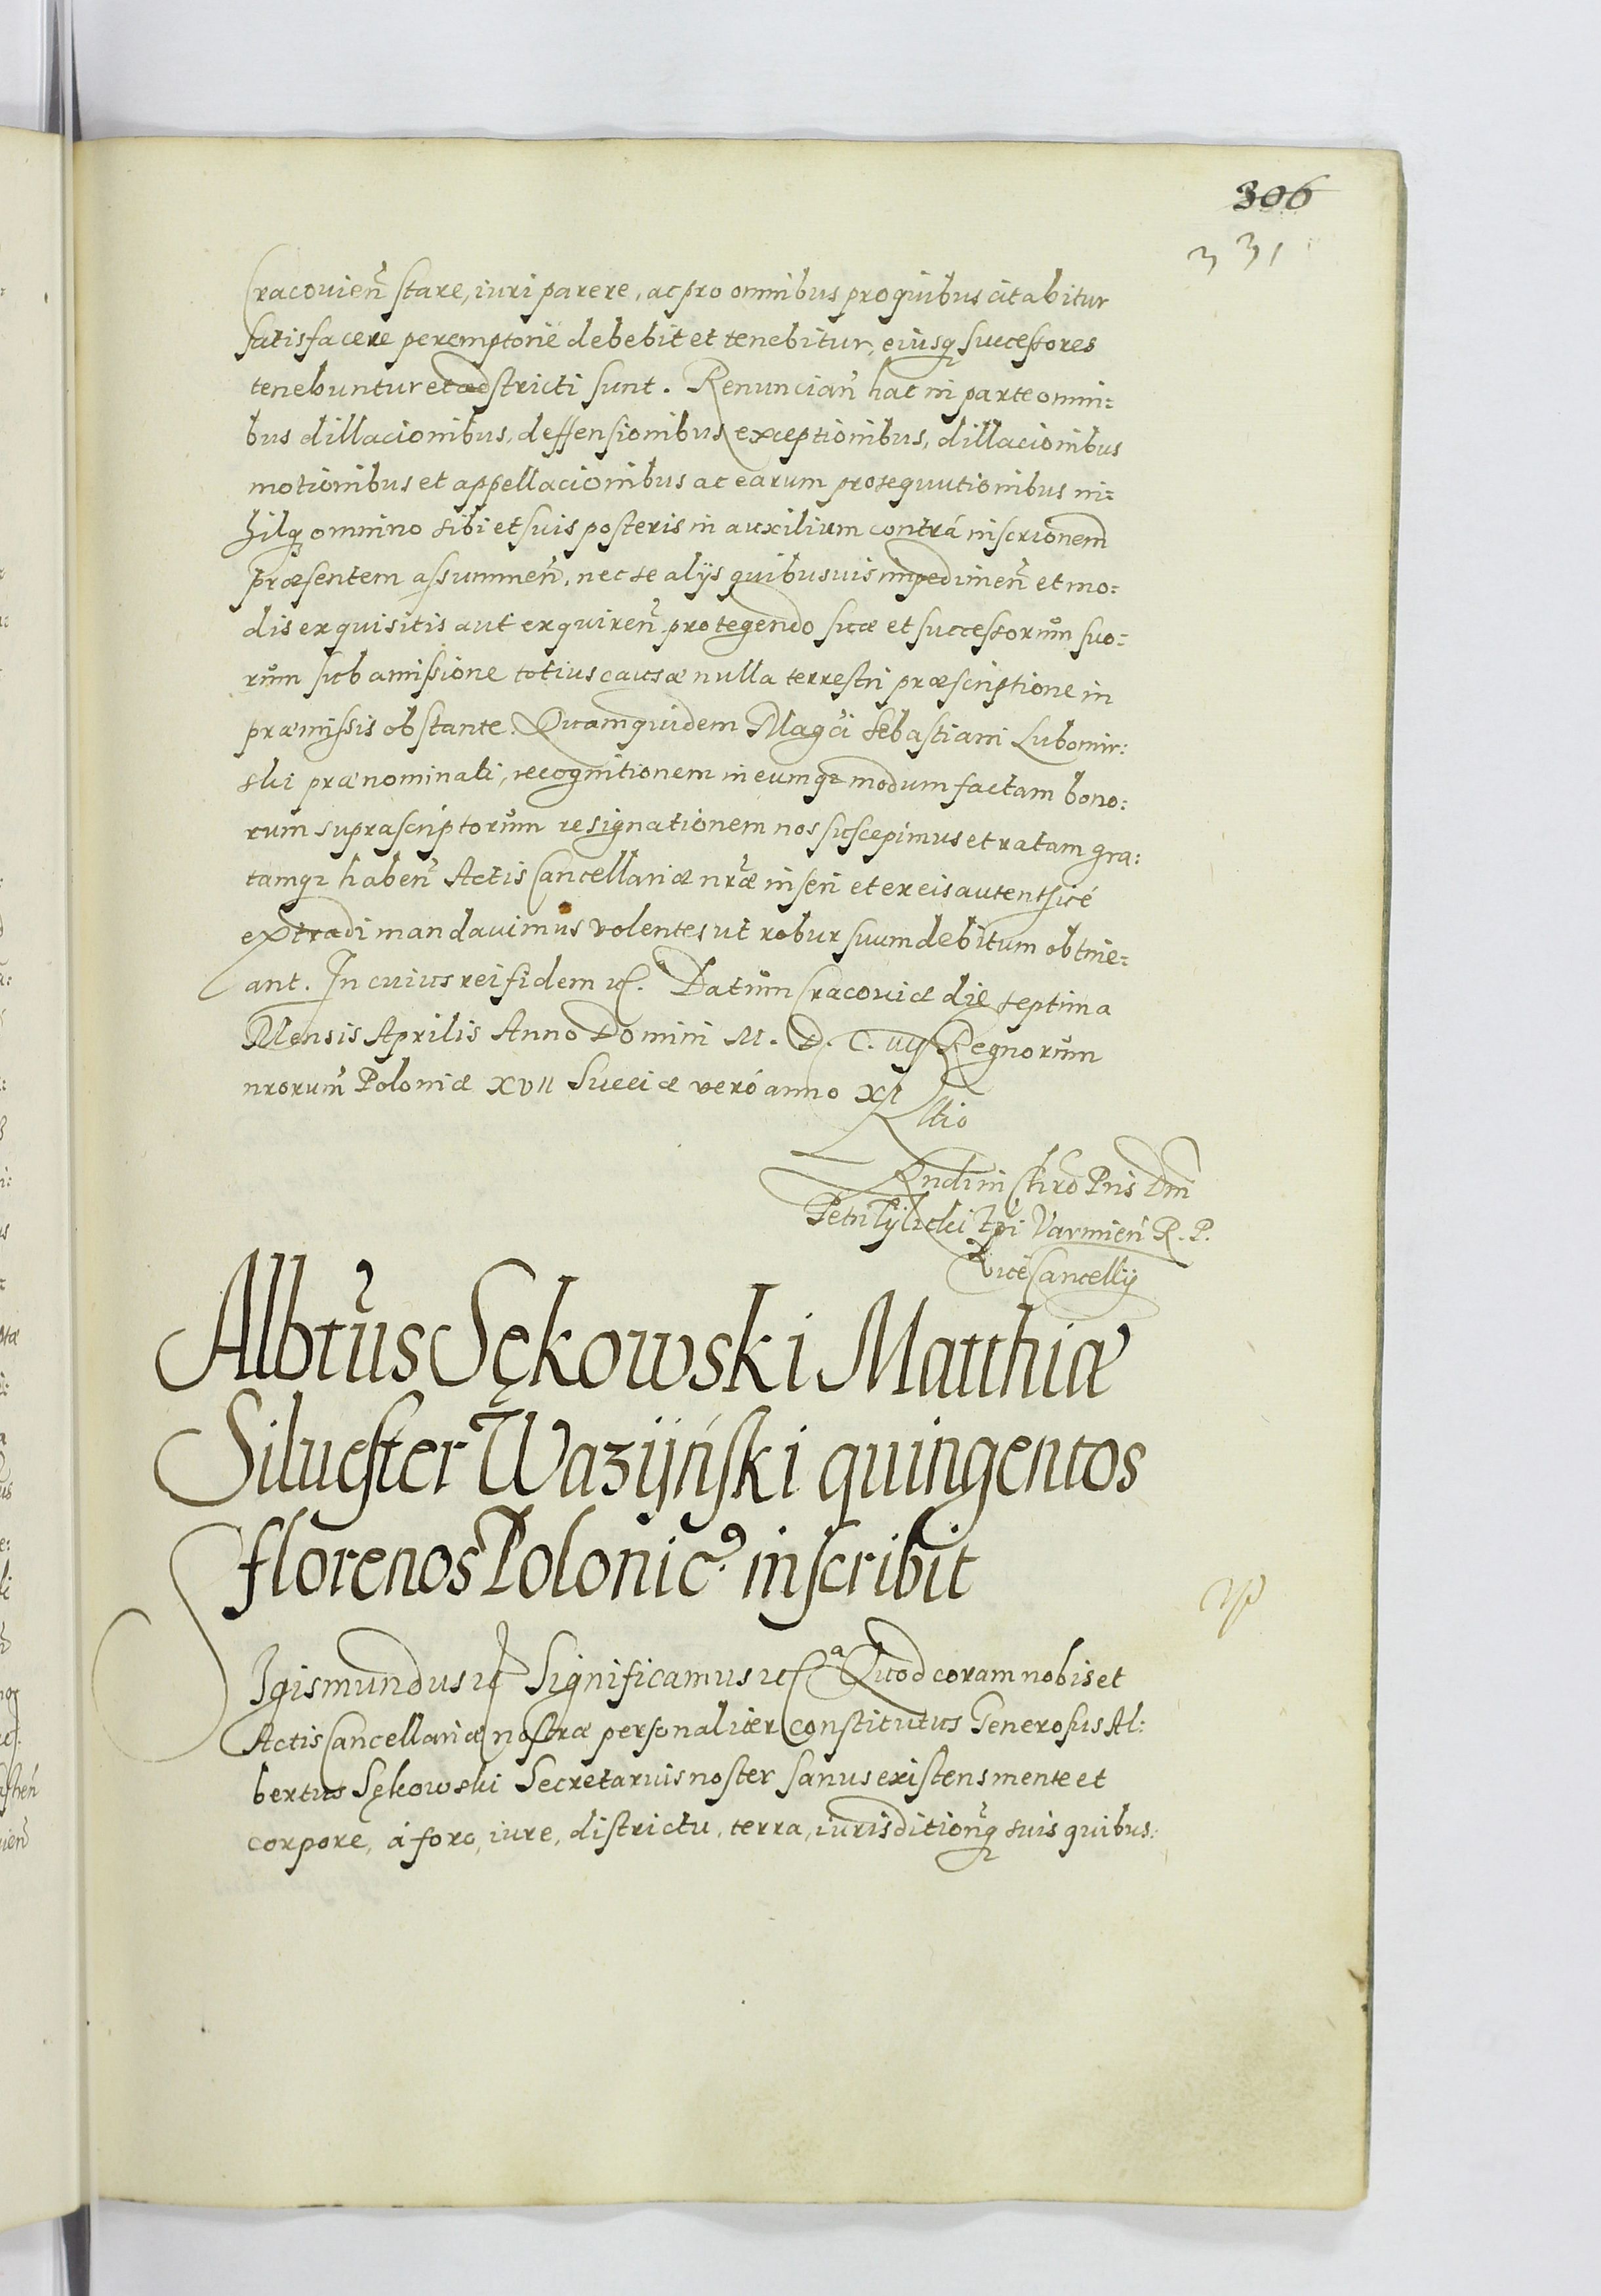 306
331
Cracovien̄ stare, iuri parere, ac pro omnibus pro quibus citabitur
satisfacere peremptorié debebit et tenebitur, eiusq̃ successores
tenebuntur et adstricti sunt. Renuncian̄ hac in parte omni:
bus dillacionibus, deffensionibus, exceptionibus, dillacionibus
motionibus et appellacionibus ac earum prosequutionibus ni:
hilq̃ omnino sibi et suis posteris in auxilium contrá inscrionem
præsentem assummen̄, nec se alijs quibusuis impedimen̄ et mo:
dis exquisitis aut exquiren̄ protegendo suæ et successorum suo:
rum sub amissione totius causæ nulla terrestri præscriptione in
præmissis obstante. Quamquidem Mag̃ci Sebastiani Lubomir:
ski prænominati, recognitionem in eumq̃ modum factam bono:
rum suprascriptorum resignationem nos suscepimus et ratam gra:
tamq̃ haben̄ Actis Cancellariæ nr̃æ inseri et ex eis autenthicé
extradi mandauimus volentes ut robur suum debitum obtine:
ant. In cuius rei fidem &c. Datum Cracouiæ die septima
Mensis Aprilis Anno Domini M. D. C. iiij Regnorum
nrorum̃ Poloniæ XVII Sueciæ veró anno XI
Rltio
Rndi in Chro Pris Dni
Petri Tylicki Epi Varmien̄ R. P.
ViceCancellij
Albt̃us Sękowski Matthiæ
Siluester Wazijński quingentos
florenos Polonic⁹. inscribit
SIgismundus &c Significamus &c Qᵃ Quod coram nobis et
Actis Cancellariæ nostræ personaliter constitutus Generosus Al:
bertus Sękowski Secretarius noster sanus existens mente et
corpore, á foro, iure, districtu, terra, iurisdition̄q̃ suis quibus: